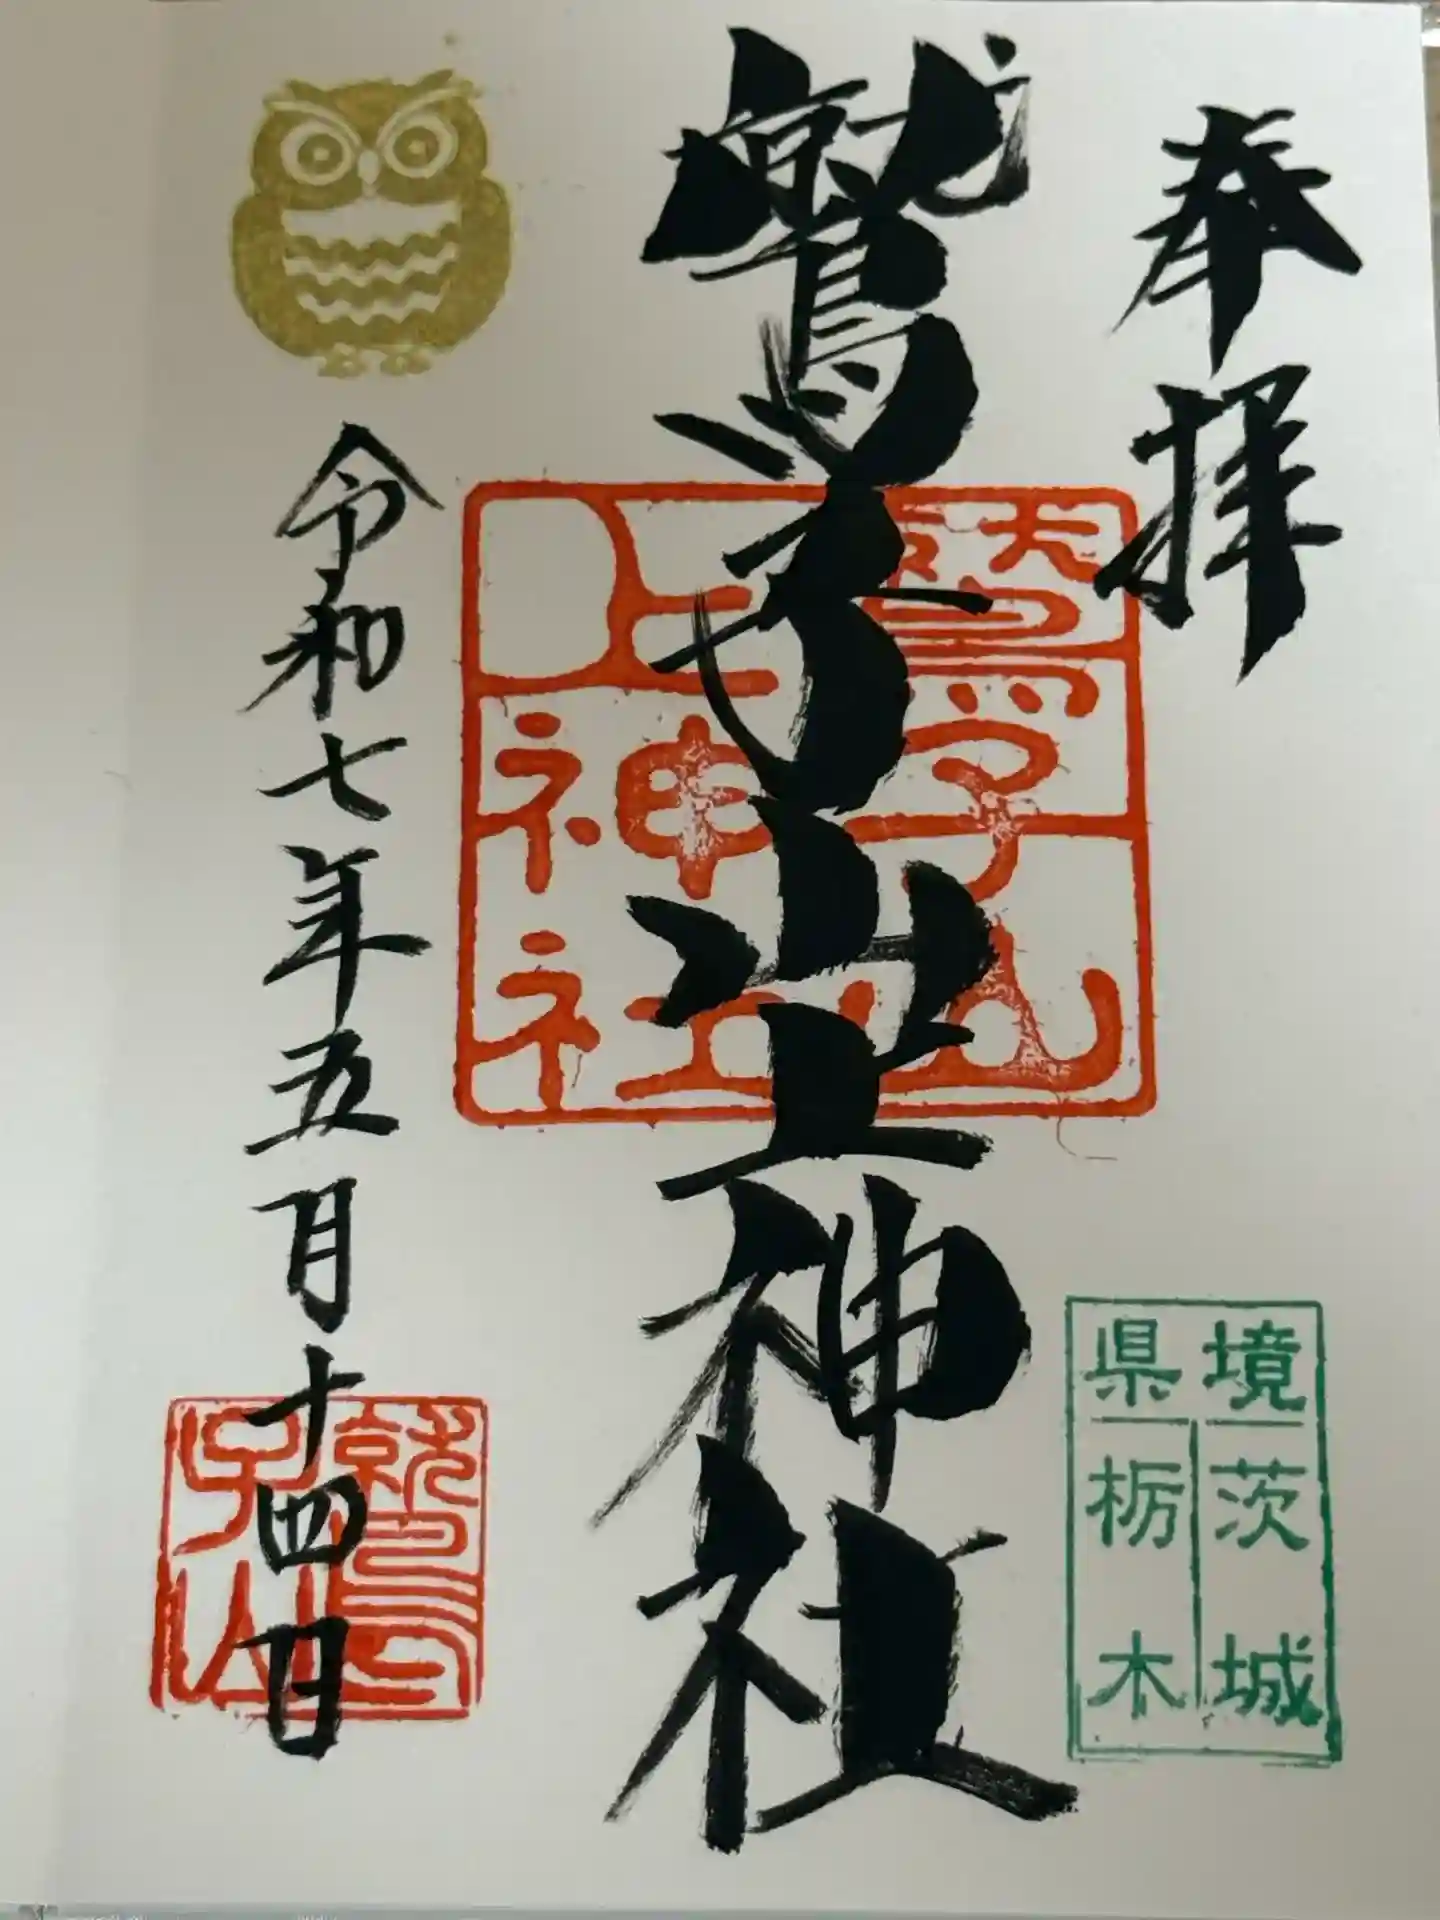 奉拝
境
茨城
県
栃木
鷲子山上神社
鷲子山
上神社
令和七年五月十四日
鷲子山